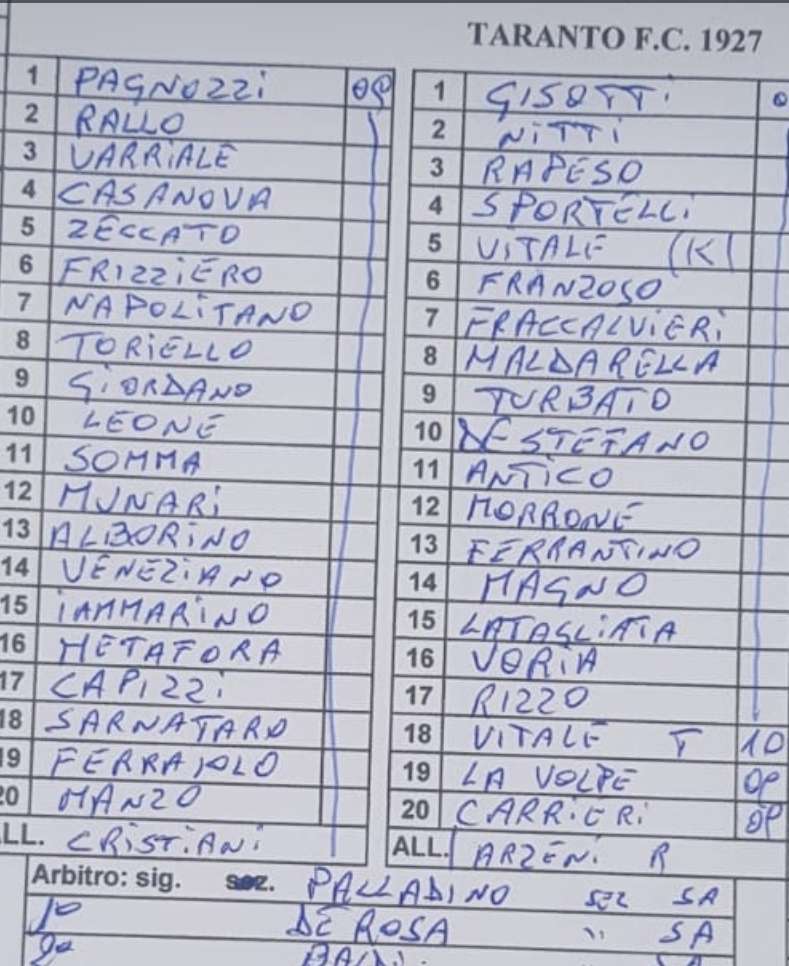 TARANTO F.C. 1927
1 PAGNOZZI 09
2 RALLO
3 VARRIALE
4 CASANOVA
5 ZECCATO
6 FRIZZIERO
7 NAPOLITANO
8 TORIELLO
9 GIORDANO
10 LEONE
11 SOMMA
12 MUNARI
13 ALBORINO
14 VENEZIANO
15 IAMMARINO
16 METAFORA
17 CAPIZZI
18 SARNATARO
19 FERRAIOLO
20 MANZO
ALL. CRISTIANI
1 GISOTTI
2 NITTI
3 RAPESO
4 SPORTELLI
5 VITALE (K)
6 FRANZOSO
7 FRACCALVIERI
8 MALDARELLA
9 TURBATO
10 DE STEFANO
11 ANTICO
12 MORRONE
13 FERRANTINO
14 MAGNO
15 LATAGLIATA
16 VORIA
17 RIZZO
18 VITALE T 10
19 LA VOLPE 09
20 CARRIERI 09
ALL. ARZENI R
Arbitro: sig. sez. PALLADINO SEZ SA
1° DE ROSA " SA
2°